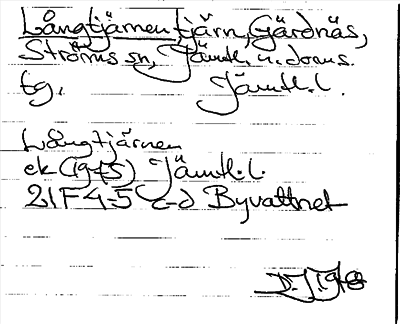 Långtjärnen tjärn, Gärdnäs,
Ströms sn, Jämtl. n. doms.
tg. Jämtl. l.
Långtjärnen
ek (1945) Jämtl. l.
21F 4-5 c-d Byvattnet
D.J. 1948